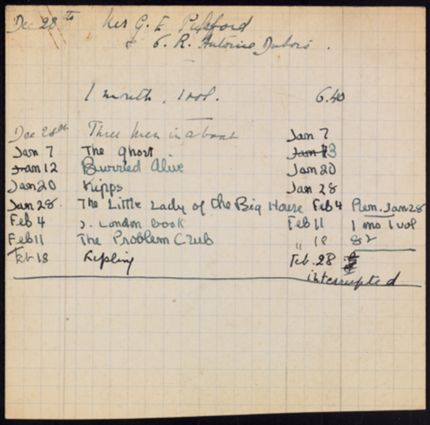 Dec 28th Mrs G. E. Pulsford
6. R. Antoine Dubois.
1 month, 1 vol. 6.40
Dec 28th Three Men in a boat Jan 7
Jan 7 The Ghost Jan 13
Jan 12 Burried Alive Jan 20
Jan 20 Kipps Jan 28
Jan 28. The Little Lady of the Big House Feb 4 Ren. Jan 28
Feb 4 J. London book Feb 11 1 mo 1 vol
Feb 11 The Problem Club " 18
Feb 18 Kipling Feb. 28
interrupted